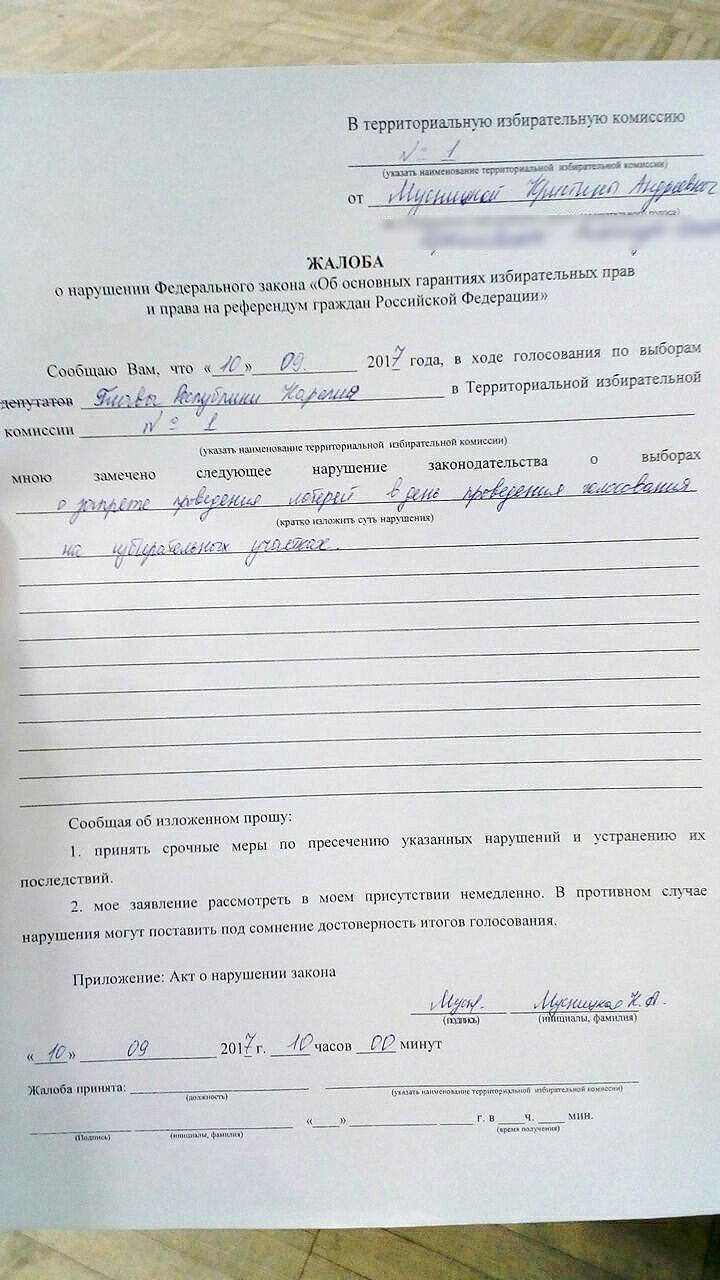 В территориальную избирательную комиссию
№ 1
(указать наименование территориальной избирательной комиссии)
от Мусницкой Кристины Андреевны
ЖАЛОБА
о нарушении Федерального закона «Об основных гарантиях избирательных прав
и права на референдум граждан Российской Федерации»
Сообщаю Вам, что «10» 09. 2017 года, в ходе голосования по выборам
депутатов Главы Республики Карелия в Территориальной избирательной
комиссии № 1
(указать наименование территориальной избирательной комиссии)
мною замечено следующее нарушение законодательства о выборах
о запрете проведения лотерей в день проведения голосования
(кратко изложить суть нарушения)
на избирательных участках.
Сообщая об изложенном прошу:
1. принять срочные меры по пресечению указанных нарушений и устранению их
последствий.
2. мое заявление рассмотреть в моем присутствии немедленно. В противном случае
нарушения могут поставить под сомнение достоверность итогов голосования.
Приложение: Акт о нарушении закона
Мусн. Мусницкая К.А.
(подпись) (инициалы, фамилия)
«10» 09 2017 г. 10 часов 00 минут
Жалоба принята:
(должность) (указать наименование территориальной избирательной комиссии)
« » г. в ч. мин.
(Подпись) (инициалы, фамилия) (время получения)